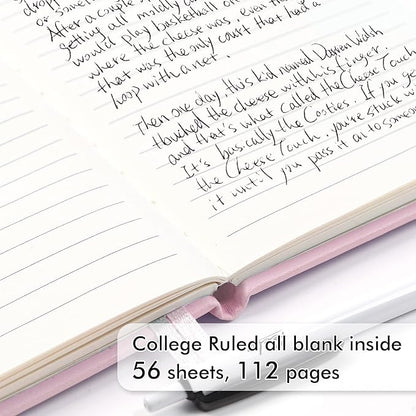 or some
After a couple
getting all mildly
would play basketball on
where the cheese was, even
that was the only court that had a
hoop with a net.
Then one day, this kid named Darren Walsh
touched the cheese with his finger,
and that's what called the Cheese Touch
It's basically the Cooties. If you ge
the Cheese Touch, you're stuck w
it until you pass it on to someo
College Ruled all blank inside
56 sheets, 112 pages